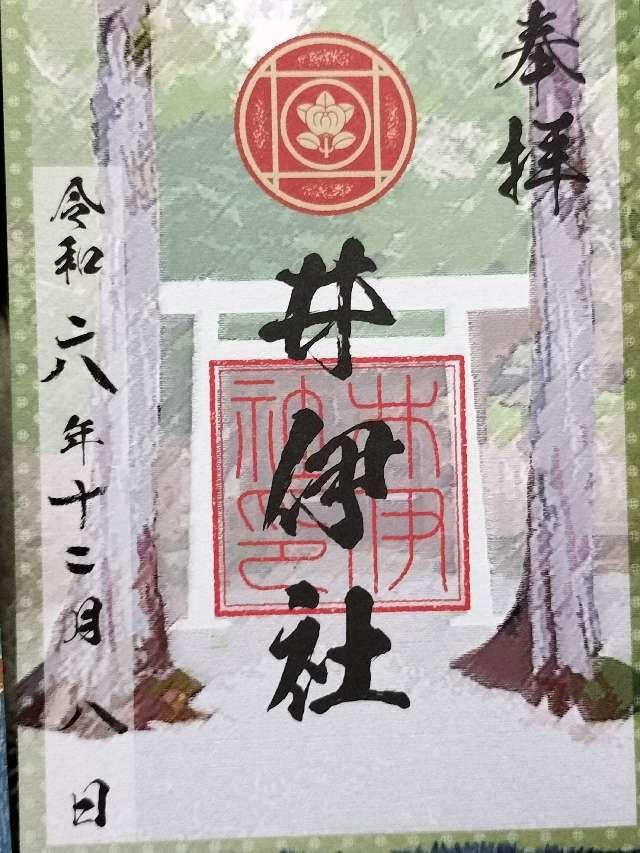 奉拝
井伊社
井伊
令和六年十二月八日